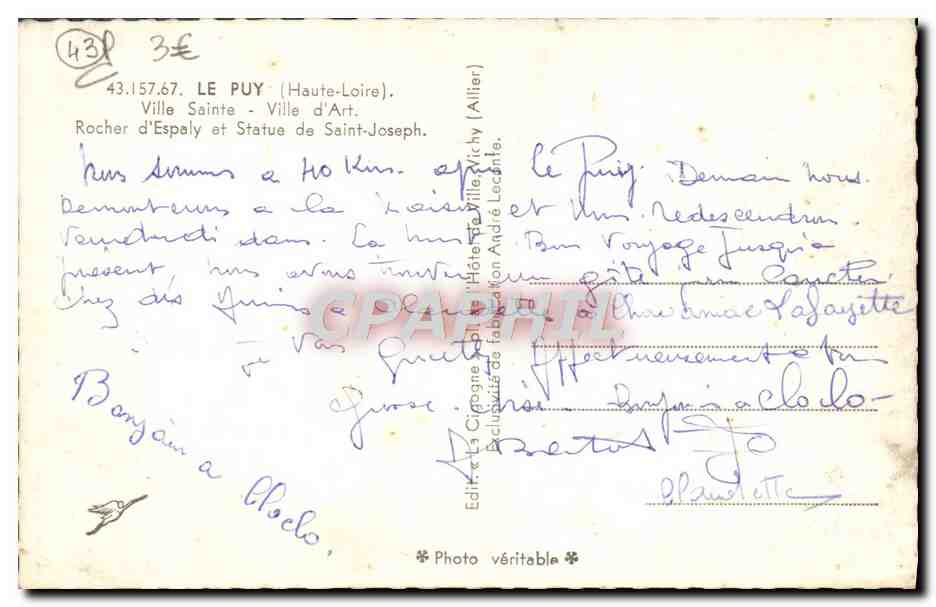 43
3€
43.157.67. LE PUY (Haute-Loire).
Ville Sainte - Ville d'Art.
Rocher d'Espaly et Statue de Saint-Joseph.
Nous sommes a 40 Kms. après le Puy. Demain nous
Remonterons a la et nous redescendrons
Vendredi dans la nuit. Bon Voyage Jusqu'a
présent, nous avons trouver un gîte
Chez des Amis a Claudette, a Chavaniac Lafayette
Je Vous quitte, Affectueusement a tous
Grosse bise. Bonjour a Cloclo-
Jo
Claudette
Bonjour a Cloclo.
Edit. « La Cigogne » pl. de l'Hôtel de Ville, Vichy (Allier)
Exclusivité de fabrication André Leconte.
CPAPHIL
Photo véritable